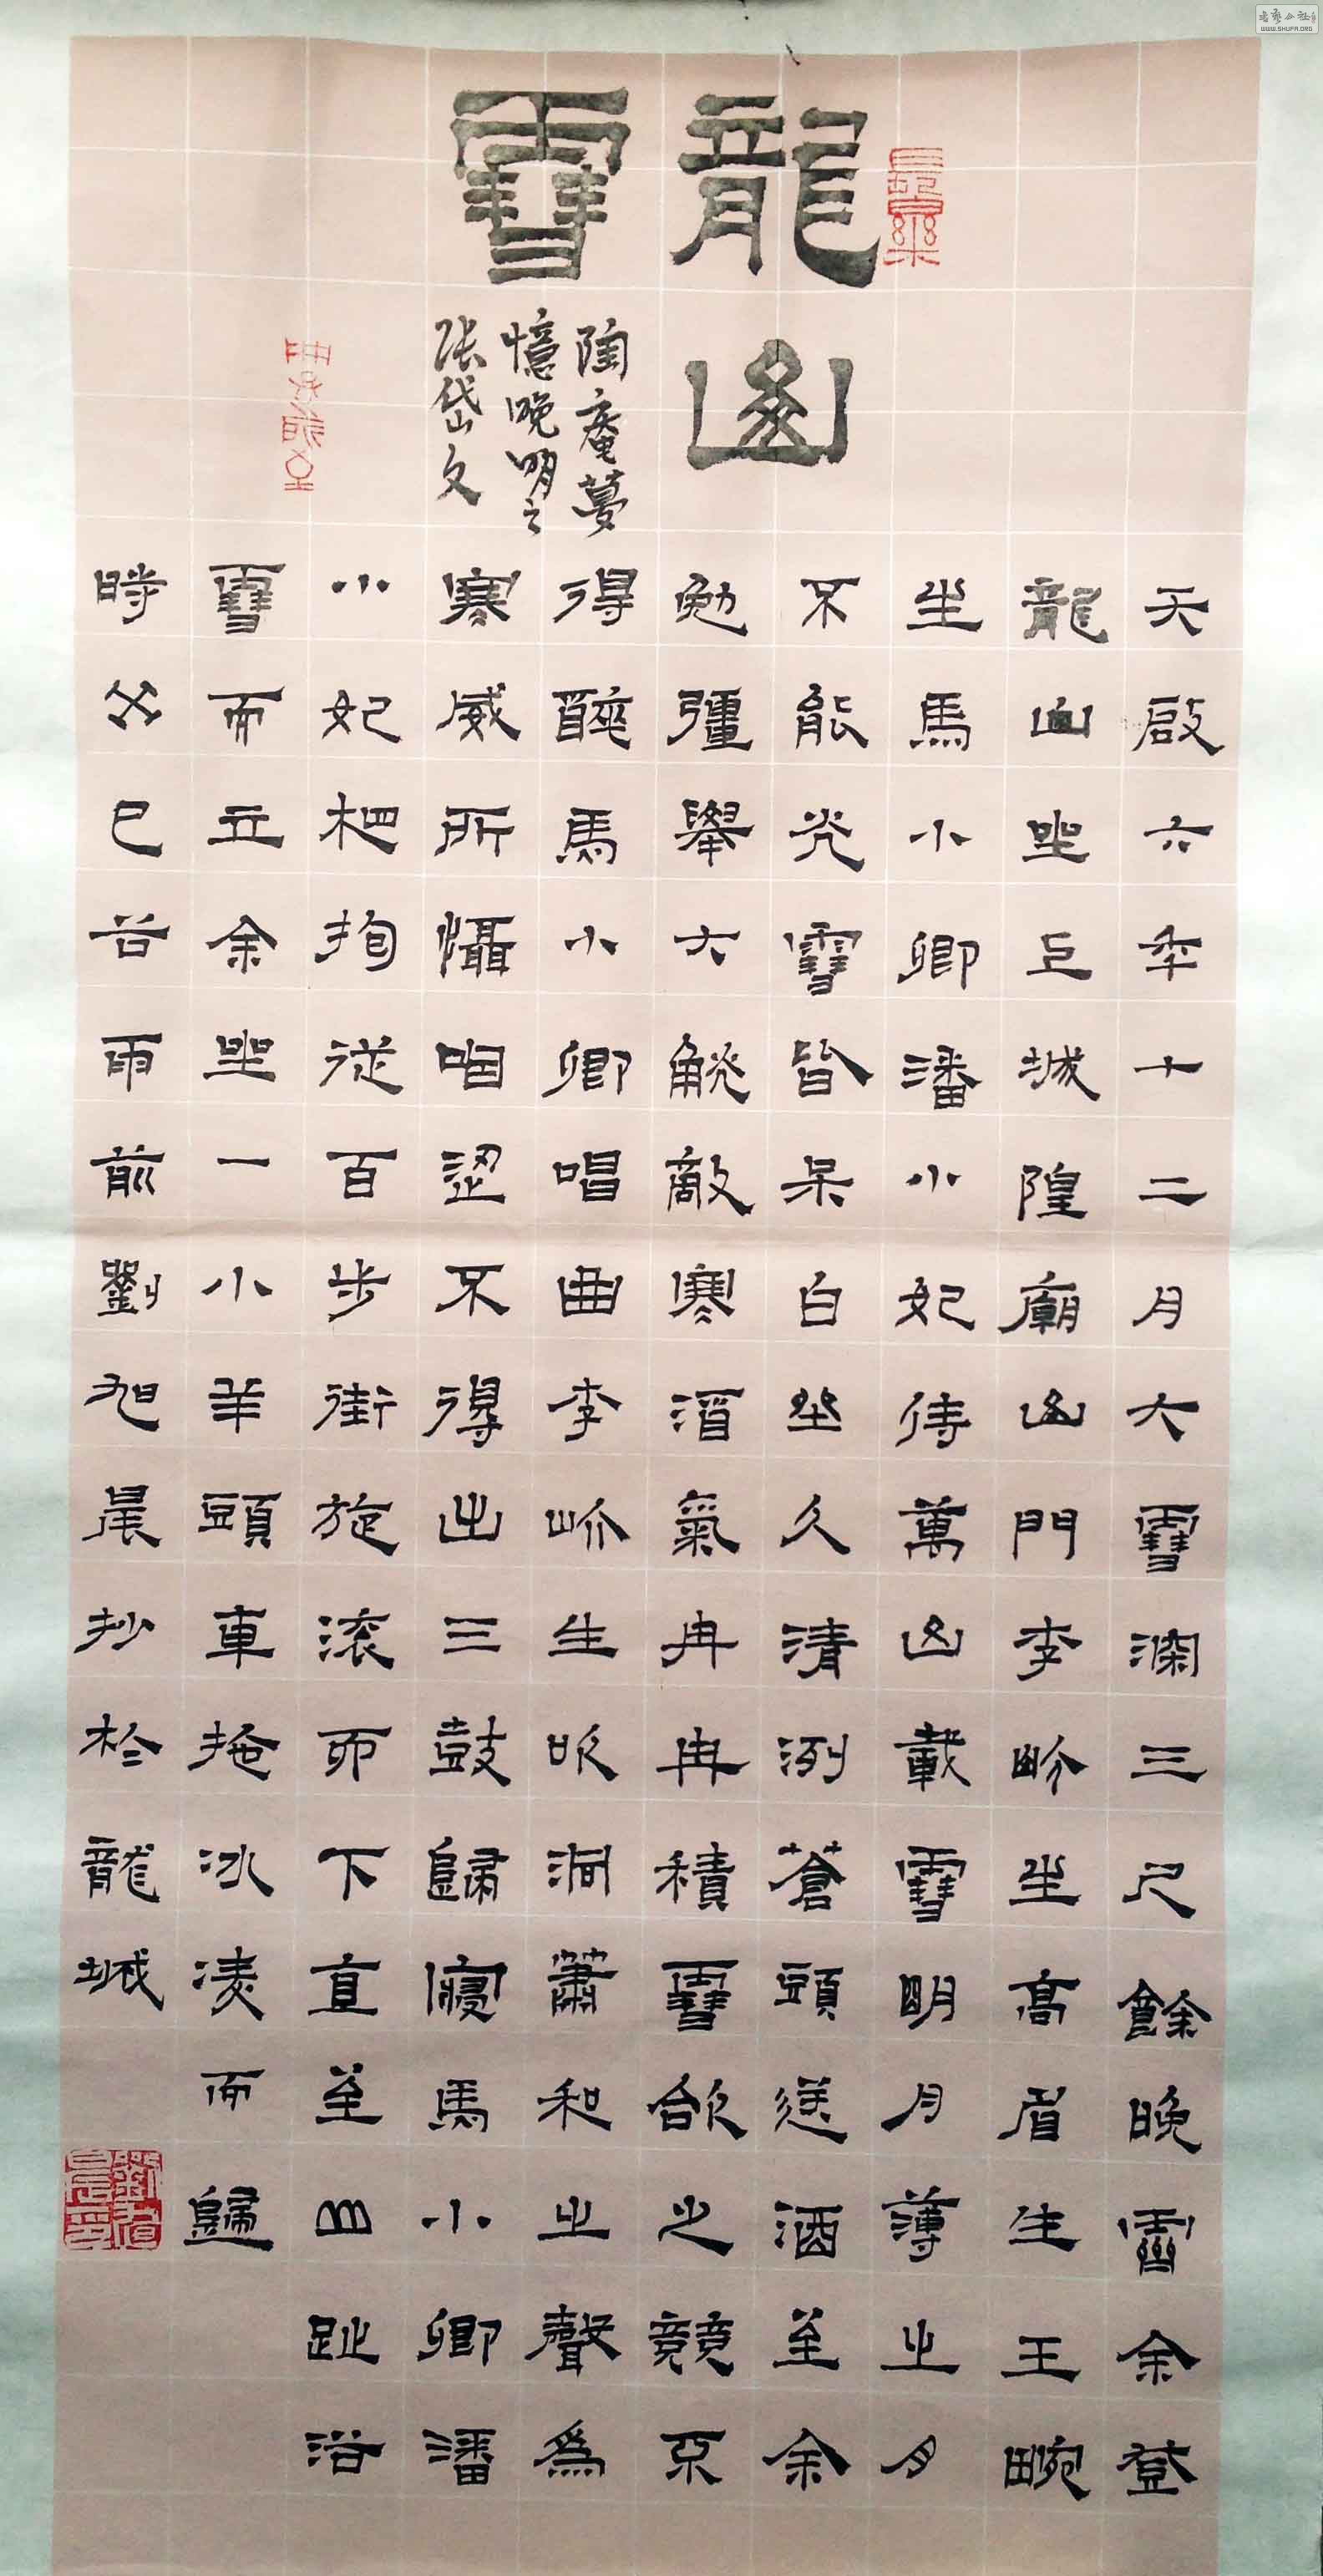 龍山
雪
陶庵夢
憶晚明之
張岱文
天啟六年十二月大雪深三尺餘晚霽余登
龍山坐上城隍廟山門李岕生高眉生王畹
生馬小卿潘小妃侍萬山載雪明月薄之月
不能光雪皆呆白坐久清冽蒼頭送酒至余
勉彊舉大觥敵寒酒氣冉冉積雪欱之竟不
得醉馬小卿唱曲李岕生吹洞簫和之聲為
寒威所懾咽澀不得出三鼓歸寢馬小卿潘
小妃相抱從百步街旋滾而下直至山趾浴
雪而立余坐一小羊頭車拖冰凌而歸
時癸巳谷雨前劉旭晨抄於龍城
WWW.SHUFA.ORG